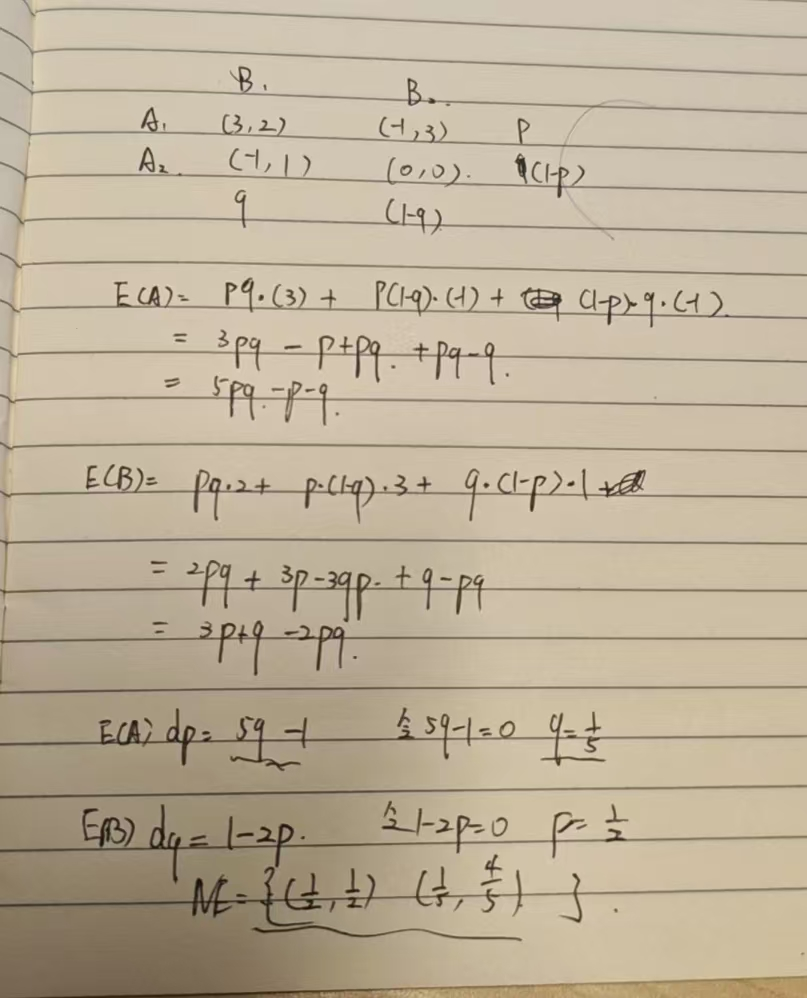 B₁ B₂.
A₁ (3,2) (-1,3) p
A₂. (-1,1) (0,0). (1-p)
q (1-q)
E(A)= pq·(3) + p(1-q)·(-1) + (1-p)·q·(-1).
= 3pq - p+pq. +pq-q.
= 5pq.-p-q.
E(B)= pq·2+ p·(1-q)·3+ q·(1-p)·1 +
= 2pq + 3p-3qp. + q-pq
= 3p+q -2pq.
E(A) dp= 5q -1 令 5q-1=0 q=1/5
E(B) dq= 1-2p. 令 1-2p=0 p= 1/2
NE= {(1/2, 1/2) (1/5, 4/5) } .